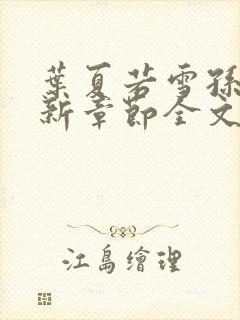 葉夏若雪孫
新章節全文
江島繪理